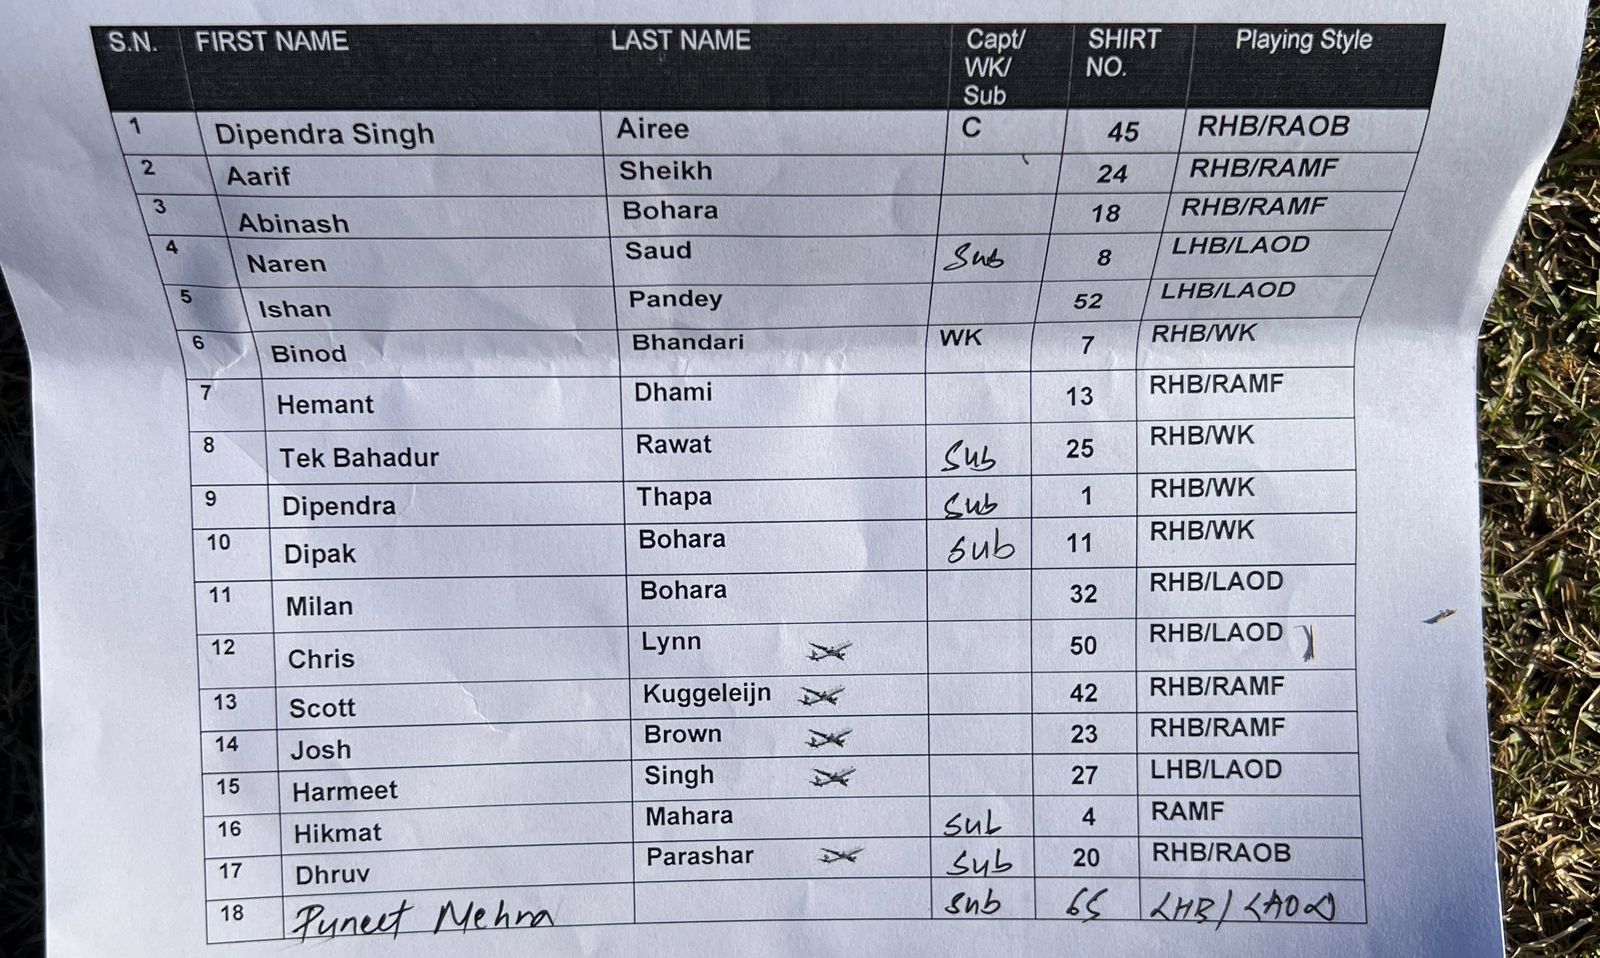 S.N. FIRST NAME LAST NAME Capt/ WK/ Sub SHIRT NO. Playing Style
1 Dipendra Singh Airee C 45 RHB/RAOB
2 Aarif Sheikh 24 RHB/RAMF
3 Abinash Bohara 18 RHB/RAMF
4 Naren Saud Sub 8 LHB/LAOD
5 Ishan Pandey 52 LHB/LAOD
6 Binod Bhandari WK 7 RHB/WK
7 Hemant Dhami 13 RHB/RAMF
8 Tek Bahadur Rawat Sub 25 RHB/WK
9 Dipendra Thapa Sub 1 RHB/WK
10 Dipak Bohara Sub 11 RHB/WK
11 Milan Bohara 32 RHB/LAOD
12 Chris Lynn 50 RHB/LAOD
13 Scott Kuggeleijn 42 RHB/RAMF
14 Josh Brown 23 RHB/RAMF
15 Harmeet Singh 27 LHB/LAOD
16 Hikmat Mahara Sub 4 RAMF
17 Dhruv Parashar Sub 20 RHB/RAOB
18 Puneet Mehra Sub 65 LHB/LAOD